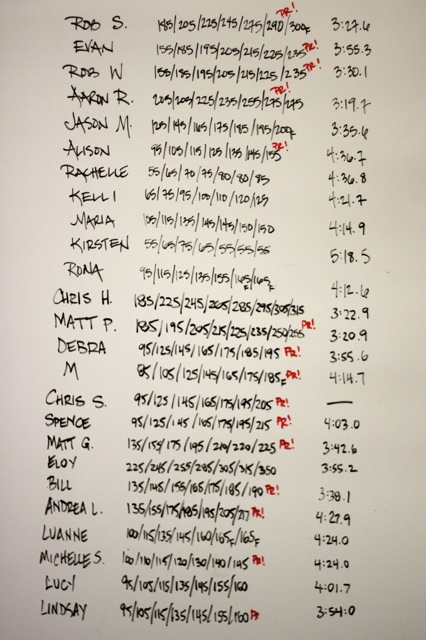 ROB S. 185/205/225/245/275/290/300F PR! 3:27.6
EVAN 155/185/195/205/215/225/235 PR! 3:55.3
ROB W 155/185/195/205/215/225/235 PR! 3:30.1
AARON R. 205/205/225/235/255/275/275 PR! 3:19.7
JASON M. 125/145/165/175/185/195/200F 3:35.6
ALISON 95/105/115/125/135/145/155 PR! 4:36.7
RACHELLE 55/65/70/75/80/80/85 4:36.8
KELLI 65/75/95/100/110/120/125 4:21.7
MARIA 105/115/135/145/145/150/150 4:14.9
KIRSTEN 55/65/75/65/55/55/55 5:18.5
RONA 95/115/125/135/155/165F/165F 4:12.6
CHRIS H. 185/225/245/265/285/295/305/315 3:22.9
MATT P. 185/195/205/215/225/235/250/255 PR! 3:20.9
DEBRA 95/125/145/165/175/185/195 PR! 3:55.6
M 85/105/125/145/165/175/185F PR! 4:14.7
CHRIS S. 95/125/145/165/175/195/205 PR! —
SPENCE 95/125/145/165/175/195/215 PR! 4:03.0
MATT G. 135/155/175/195/210/220/225 PR! 3:42.6
ELOY 225/245/255/285/305/315/350 3:55.2
BILL 135/145/155/165/175/185/190 PR! 3:38.1
ANDREA L. 135/155/175/185/195/205/217 PR! 4:27.9
LUANNE 100/115/135/145/160/165F/165F 4:24.0
MICHELLE S. 100/110/115/120/130/140/145 PR! 4:24.0
LUCY 95/105/115/135/145/155/160 4:01.7
LINDSAY 95/105/115/135/145/155/160 PR 3:54.0